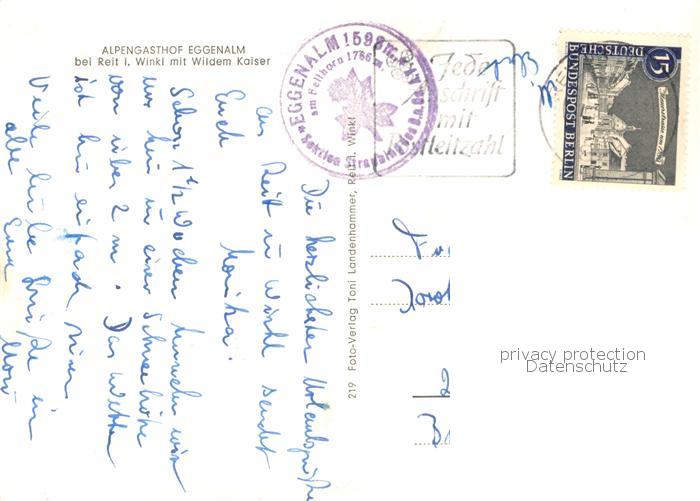 ALPENGASTHOF EGGENALM
bei Reit i. Winkl mit Wildem Kaiser
EGGENALM 1598 m
am Fellhorn 1766 m.
Sektion
Jede
schrift
mit
stleitzahl
15
DEUTSCHE
BUNDESPOST BERLIN
219 Foto-Verlag Toni Landenhammer, Reit i. Winkl
Die herzlichsten Urlaubsgrüße
aus Reit im Winkl sendet
Euch Monika.
Schon 1 1/2 Wochen
wir hier in einer Schneehöhe
von über 2 m. Das Wetter
ist hier einfach
Viele liebe Grüße
alle Eure
privacy protection
Datenschutz